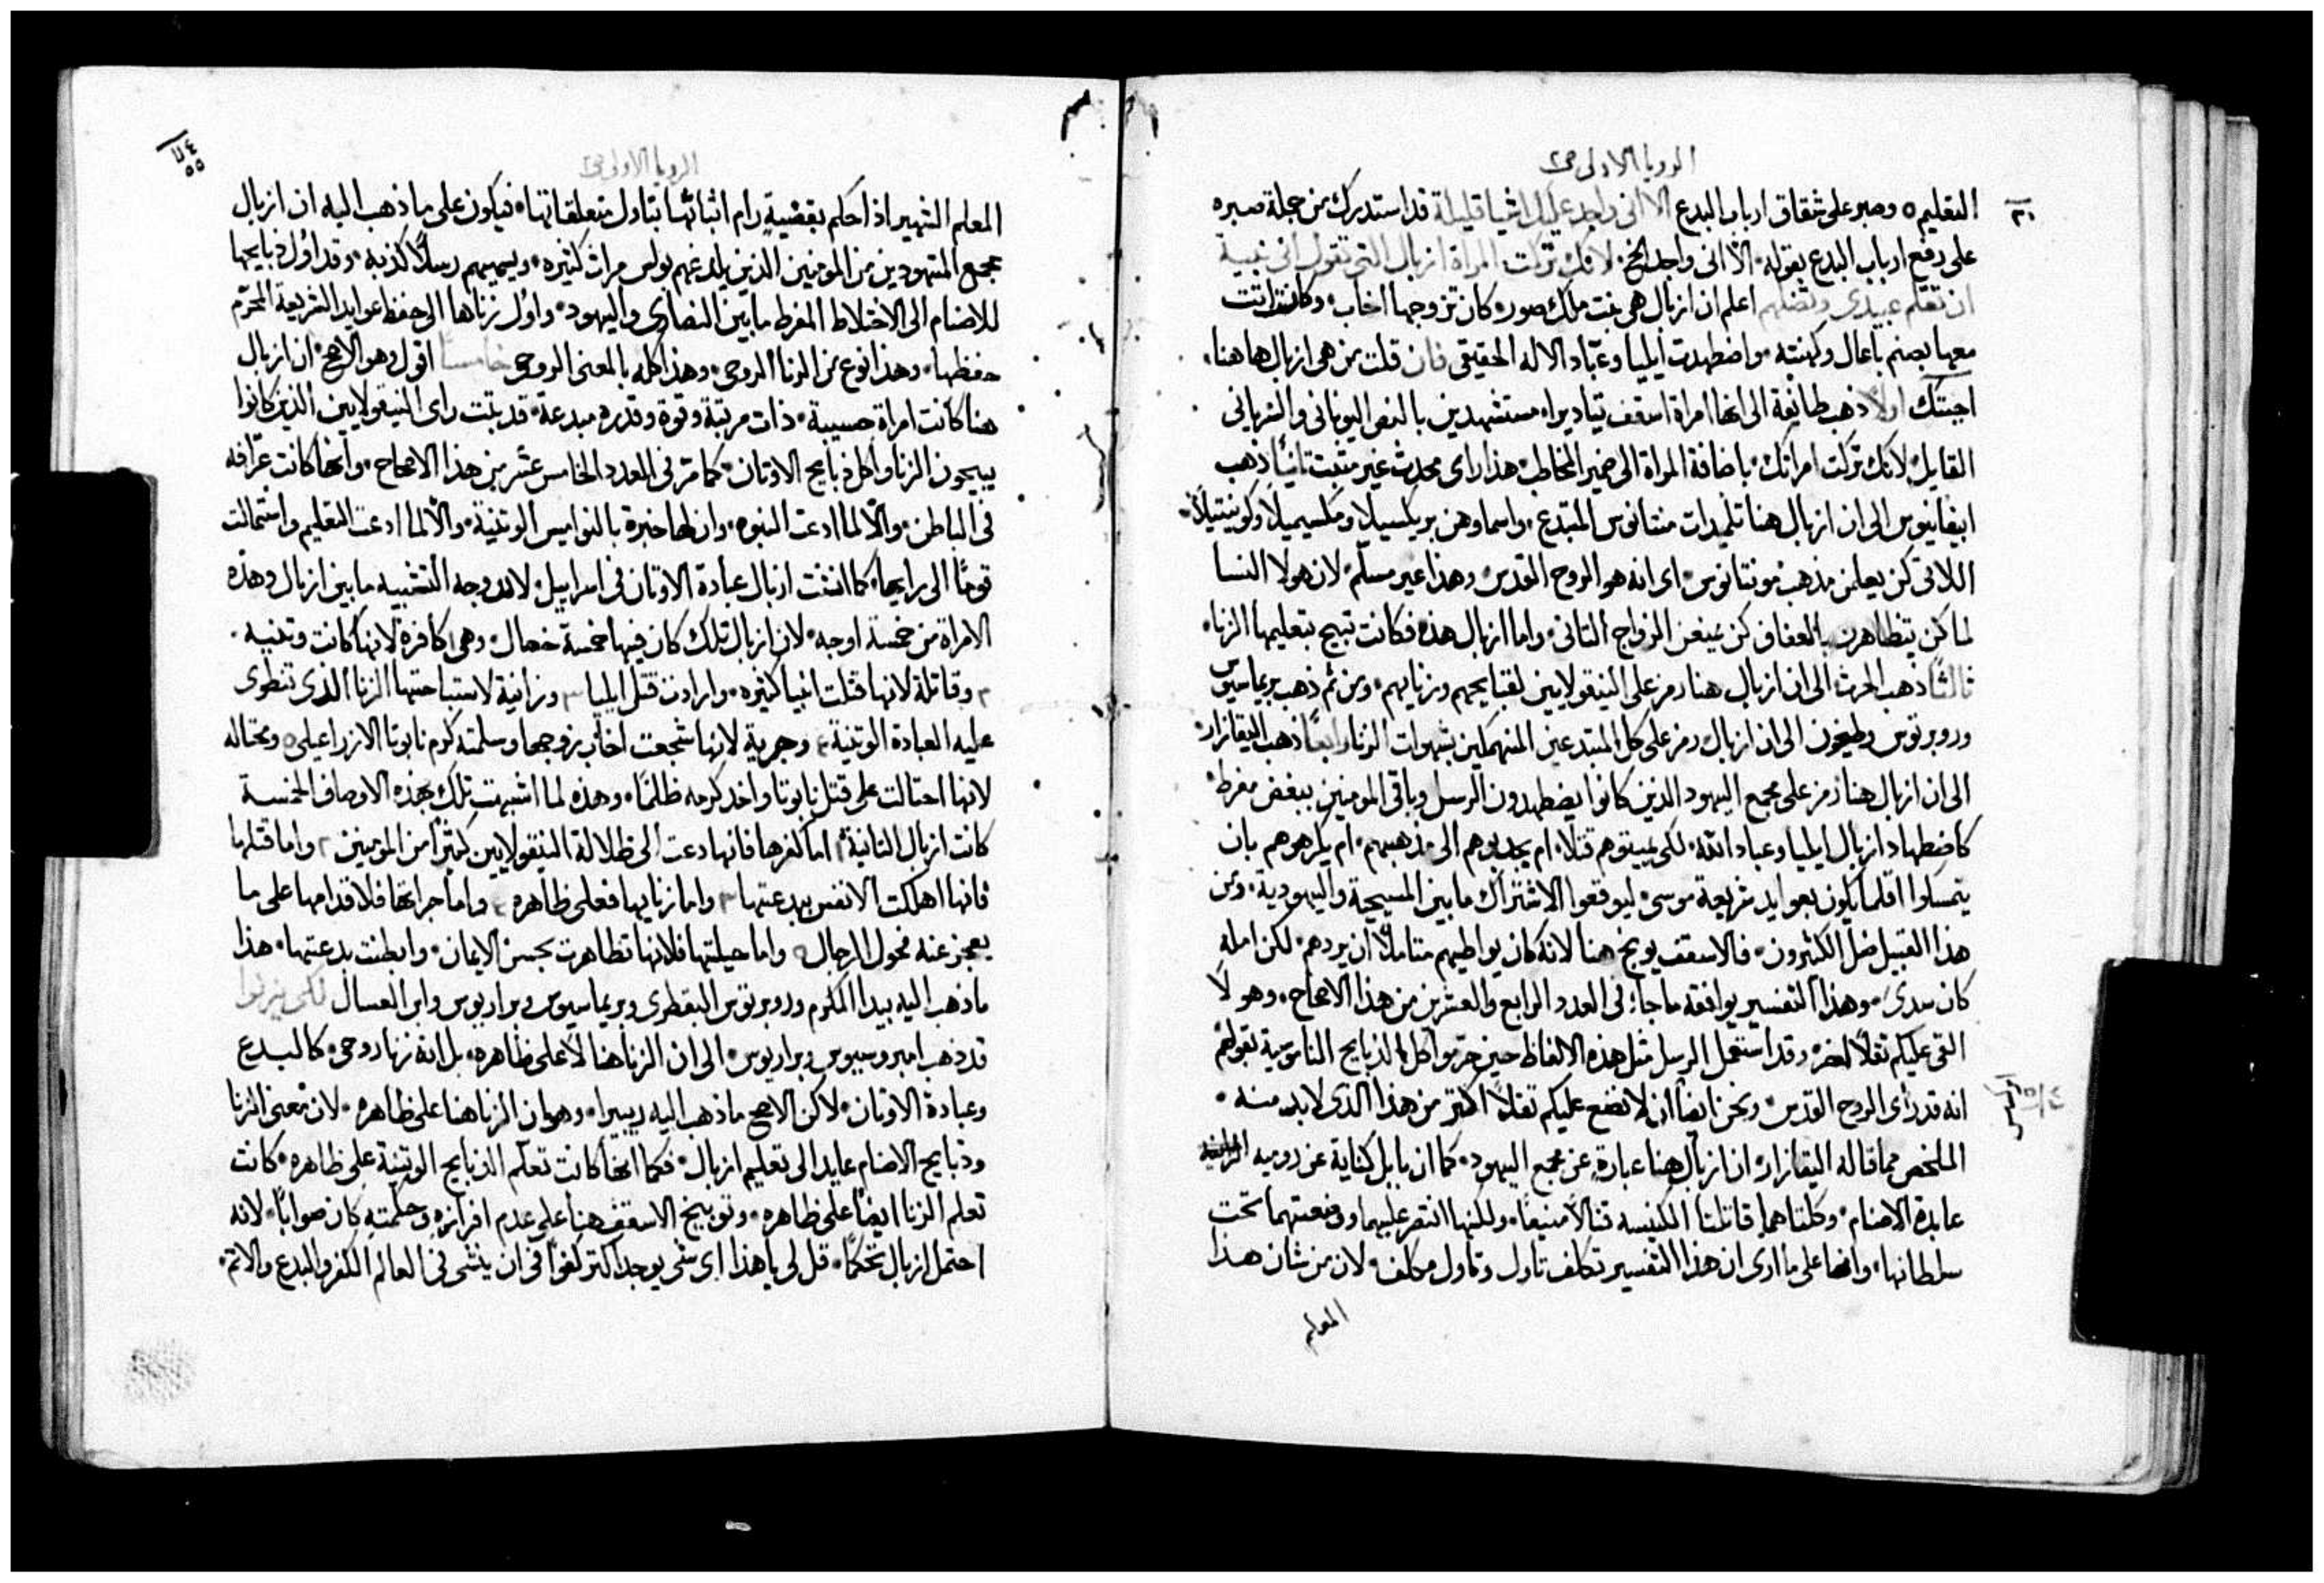 الرويا الاولى ص٢
٢٠
التعليم ٥ وصبر على شقاق ارباب البدع الا انى واجد عليك اشيا قليلة قد استدرك من جملة صبره
على دفع ارباب البدع بقوله الا انى واجد الخ لانك تركت المراة ازبال التى تقول انى نبية
ان تعلم عبيدى وتضلهم اعلم ان ازبال هى بنت ملك صور كان تزوجها اخاب وكانت اتت
معها بصنم باعال وكهنته واضطهدت ايليا وعبّاد الاله الحقيقى فان قلت من هى ازبال هاهنا
اجبتك اولاً ذهب طائفة الى انها امراة اسقف تياديرا مستشهدين بالنص اليونانى والسريانى
القايل لانك تركت امراتك باضافة المراة الى ضمير المخاطب هذا راى محدث غير مثبت ثانياً ذهب
ابيفانيوس الى ان ازبال هنا تلميدات منتانوس المبتدع واسماوهن بريكسيلاً ومكسيميلاً وكوينتيلاً
اللاتى كن يعلمن مذهب مونتانوس اى انه هو الروح القدس وهذا غير مسلّم لان هولا النسا
لما كن يتظاهرن بالعفاف كن يمنعن الزواج الثانى واما ازبال هذه فكانت تبيح بتعليمها الزنا
ثالثاً ذهب الحرث الى ان ازبال هنا رمز على النيقولايين لقبايحهم وزنايهم ومن ثم ذهب بريماسيوس
وروبرتوس وطيخون الى ان ازبال رمز على كل المبتدعين المنهمكين بشهوات الزنا رابعاً ذهب اليقازار
الى ان ازبال هنا رمز على مجمع اليهود الذين كانوا يضطهدون الرسل وباقى المومنين ببغض مفرط
كاضطهاد ازبال ايليا وعباد الله لكى يميتوهم قتلاً ام يجذبوهم الى مذهبهم ام يكرهوهم بان
يتمسكوا اقلما يكون بعوايد شريعة موسى ليوقعوا الاشتراك ما بين المسيحية واليهودية ومن
هذا القبيل ضل الكثيرون فالاسقف يوبخ هنا لانه كان يواطيهم متاملاً ان يردهم لكن امله
كان سدى وهذا التفسير يوافقه ما جا فى العدد الرابع والعشرين من هذا الاصحاح وهو لا
القى عليكم ثقلاً اخر وقد استعمل الرسل مثل هذه الالفاظ حين حرّموا اكل الذبايح الناموسية بقولهم
انه قد راى الروح القدس ونحن ايضاً ان لا نضع عليكم ثقلاً اكثر من هذا الذى لا بد منه
الملخص مما قاله اليقازار ان ازبال هنا عبارة عن مجمع اليهود كما ان بابل كناية عن رومية
عابدة الاصنام وكلتاهما قاتلتا الكنيسه قتالاً منيفاً ولكنها انتصر عليهما ووضعتهما تحت
سلطانها وانها على ما ارى ان هذا التفسير تكلف تاول وتاول مكلف لان من شان هذا
المعلم
الرويا الاولى ص٢
٥٥
المعلم الشهير اذا حكم بقضيةٍ رام اثباتها بتاول متعلقاتها فيكون على ما ذهب اليه ان ازبال
مجمع المتهودين من المومنين الذين يلدغهم بولس مرات كثيره ويسميهم رسلاً كذبه وقد اوّل ذبايحها
للاصنام الى الاختلاط المفرط ما بين النصارى واليهود واوّل زناها الى حفظ عوايد الشريعة المحرّم
حفظها وهذا نوع من الزنا الروحى وهذا كله بالمعنى الروحى خامساً اقول وهو الاصح ان ازبال
هنا كانت امراة حسيبة ذات مرتبة وقوة وقدره مبدعة قد تبتت راى النيقولايين الذين كانوا
يبيحون الزنا واكل ذبايح الاوثان كما مرّ فى العدد الخامس عشر من هذا الاصحاح وانها كانت عرّافه
فى الباطن والاّ لما ادعت النبوه وان لها خبرة بالنواميس الوثنية والاّ لما ادعت التعليم واستمالت
قوماً الى رايها كما انشت ازبال عبادة الاوثان فى اسراييل لان وجه التشبيه ما بين ازبال وهذه
الامراة من خمسة اوجه لان ازبال تلك كان فيها خمسة خصال وهى كافرة لانها كانت وثنيه
٢ وقاتلة لانها قتلت انبيا كثيره وارادت قتل ايليا ٣ وزانية لاستباحتها الزنا الذى تنطوى
عليه العبادة الوثنية ٤ وجرية لانها شجعت اخاب زوجها وسلمته كرم نابوتا الازراعيلى ٥ ومحتاله
لانها احتالت على قتل نابوتا واخد كرمه ظلماً وهذه لما اشبهت تلك بهذه الاوصاف الخمسة
كانت ازبال الثانية اما كفرها فانها دعت الى ظلالة النيقولايين كثيراً من المومنين ٢ واما قتلها
فانها اهلكت الانفس ببدعتها ٣ واما زنايها فعلى ظاهره ٤ واما جراتها فلاقدامها على ما
يعجز عنه فحول الرجال ٥ واما حيلتها فلانها تظاهرت بحسن الايمان وابطنت بدعتها هذا
ما ذهب اليه بيدا المكرم وروبرتوس البقطرى وبريماسيوس وبراريوس وابن العسال لكى يزنوا
قد ذهب امبروسيوس وبراريوس الى ان الزنا هنا لا على ظاهره بل انه زنا روحى كالبدع
وعبادة الاوثان لاكن الاصح ما ذهب اليه ريبيرا وهو ان الزنا هنا على ظاهره لان معنى الزنا
وذبايح الاصنام عايد الى تعليم ازبال فكما انها كانت تعلّم الذبايح الوثنية على ظاهره كانت
تعلم الزنا ايضاً على ظاهره وتوبيخ الاسقف هنا على عدم افرازه وحكمته كان صواباً لانه
احتمل ازبال تحكماً قل لى يا هذا اى شى يوجد اكثر كفراً فى ان ينشى فى العالم الكفر والبدع والاثم